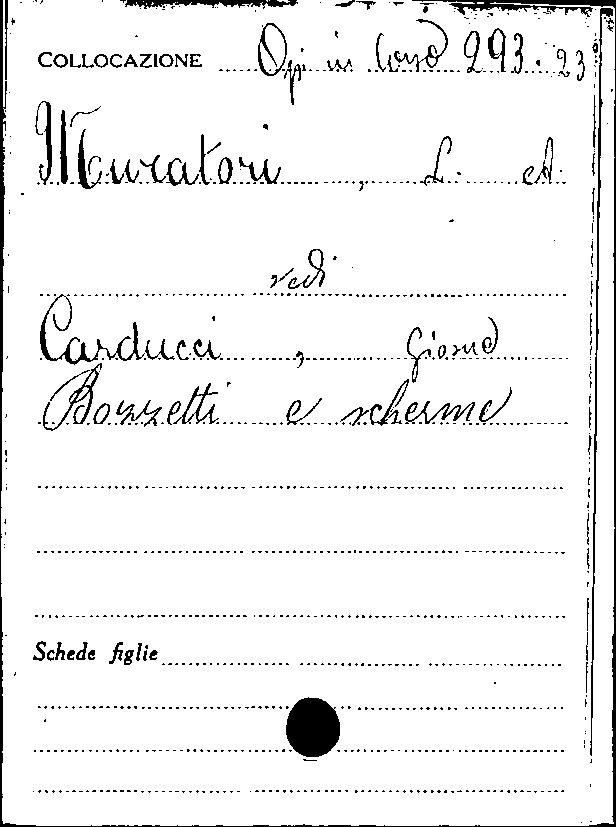 COLLOCAZIONE Op in Corso 293.23
Muratori, L. A.
vedi
Carducci, Giosuè
Bozzetti e scherme
Schede figlie